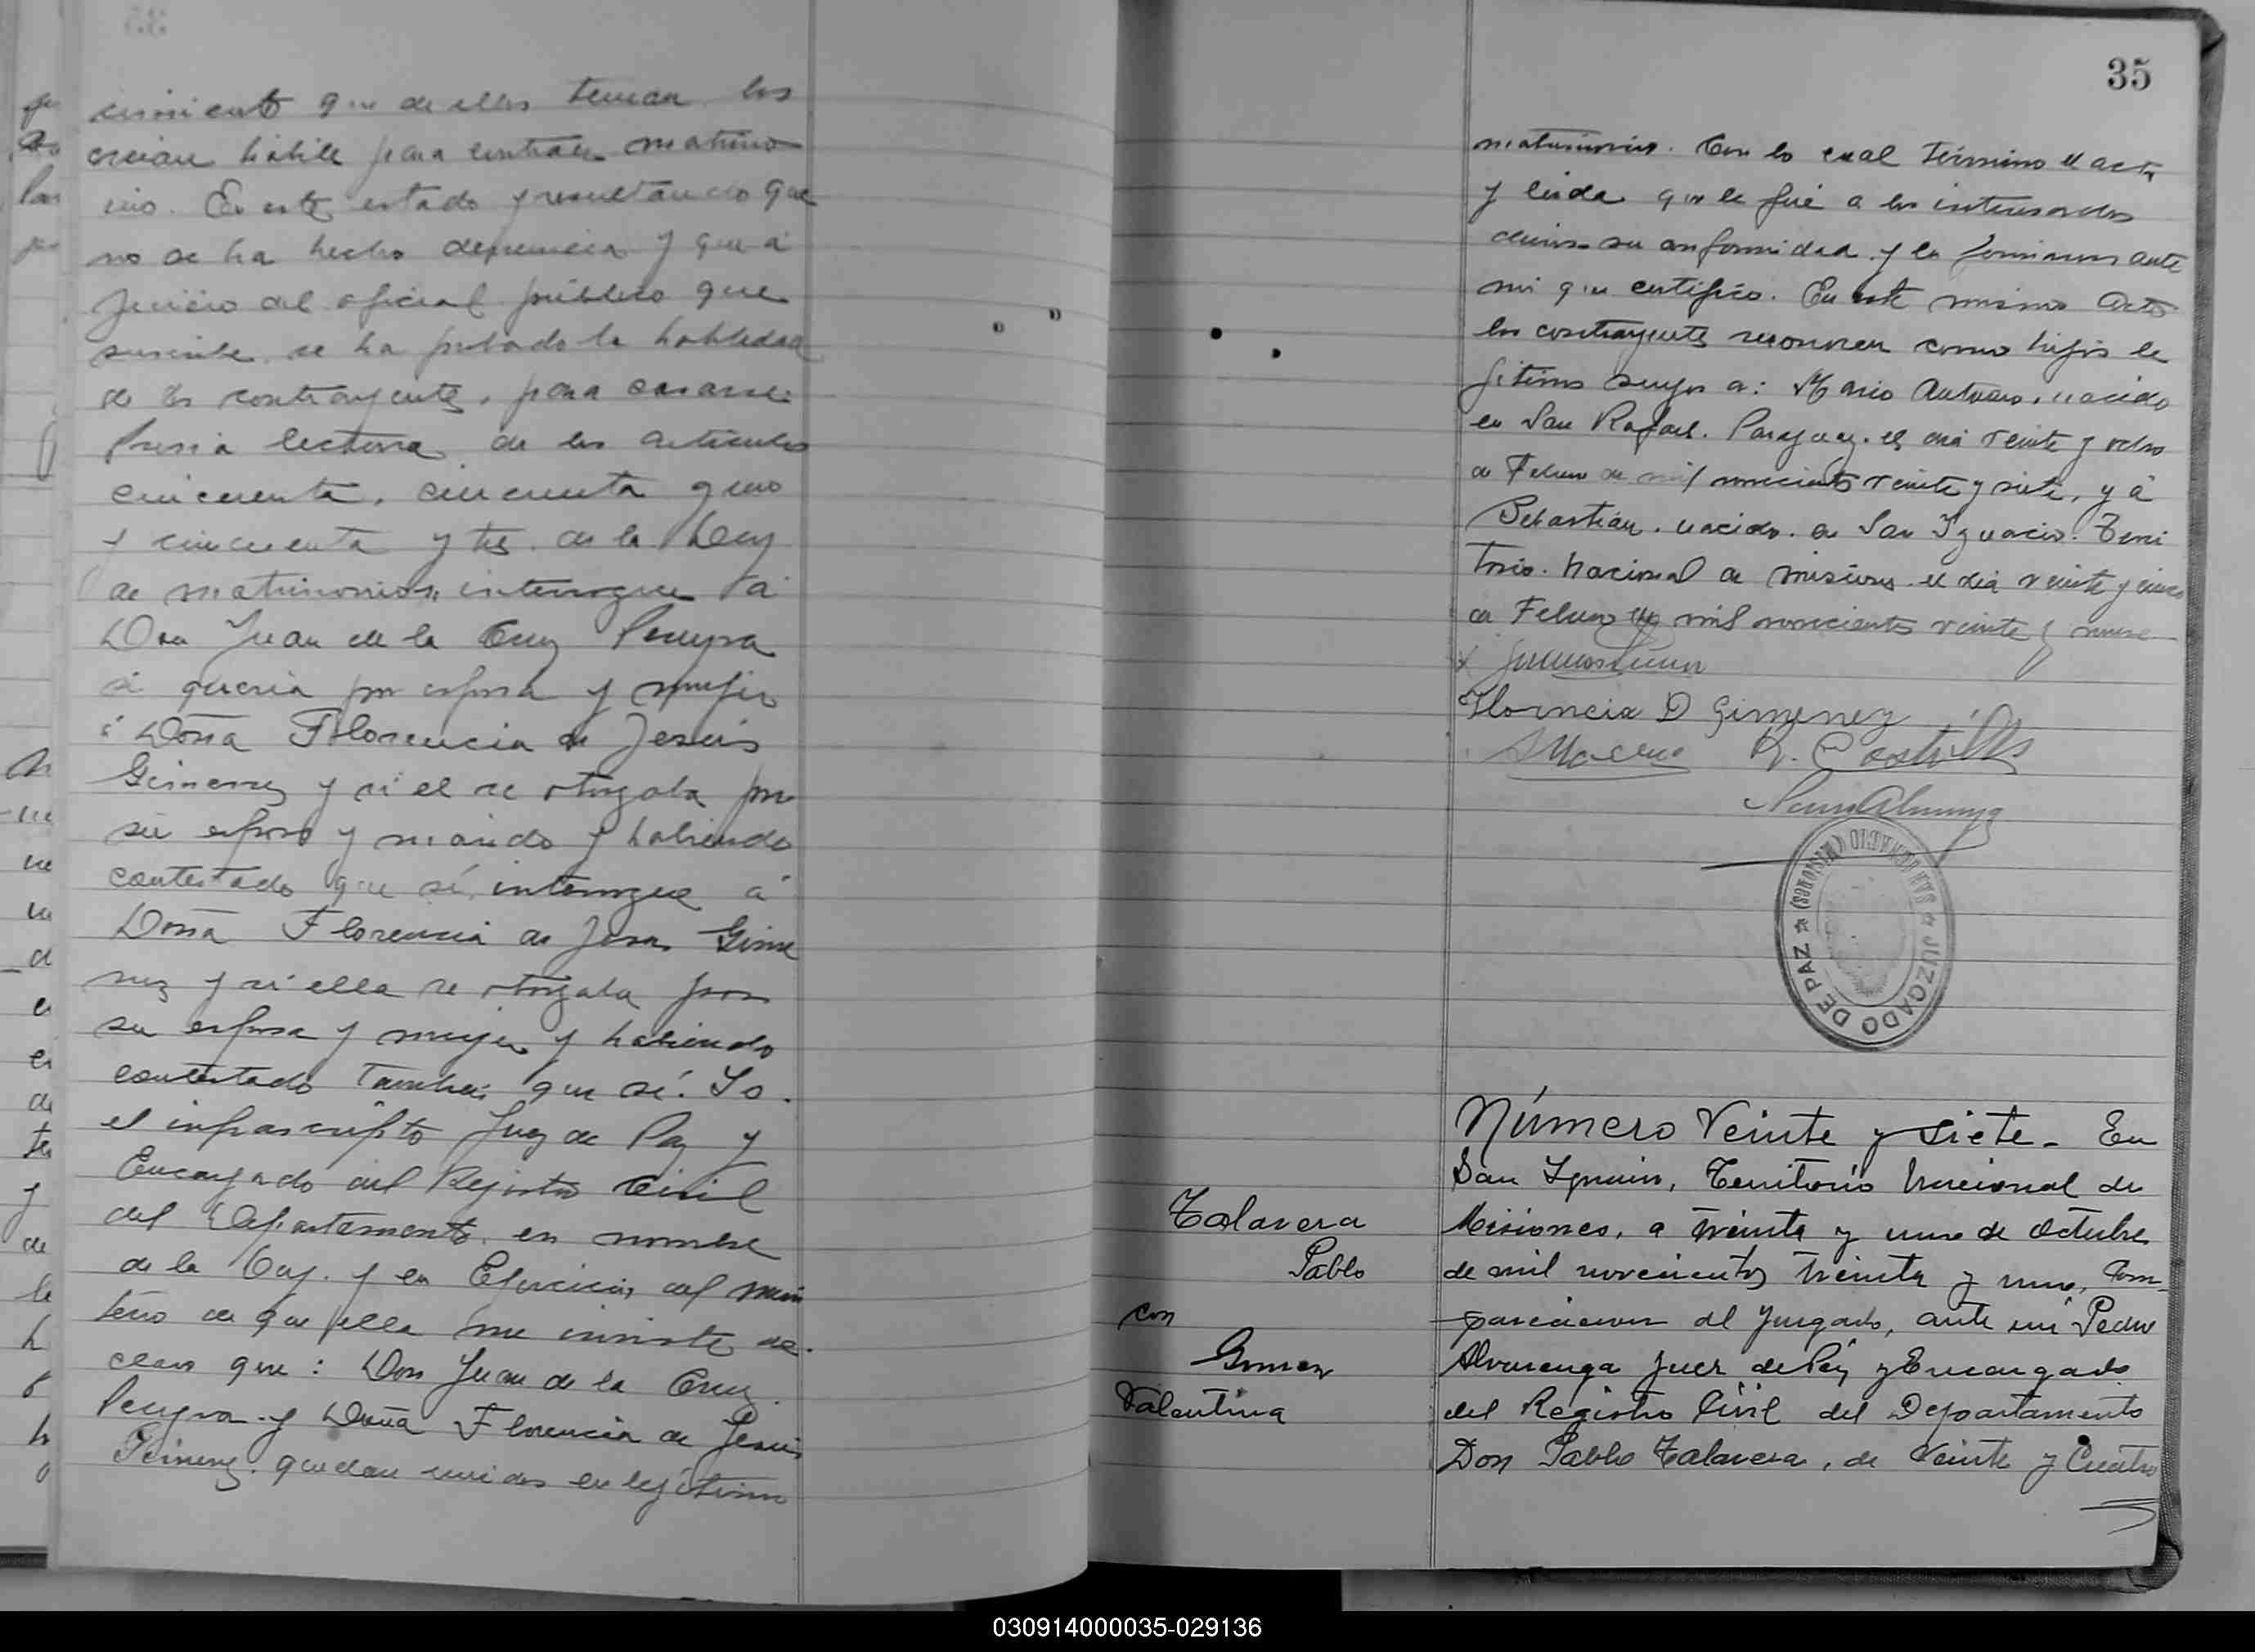 cimiento que de ellos tenian los
creian habiles para contraer matrimo
nio. En este estado y resultando que
no se ha hecho denuncia y que á
juicio del oficial público que
suscribe, se ha probado la habilidad
de los contrayentes, para casarse.
Previa lectura de los articulos
cincuenta, cincuenta y uno
y cincuenta y tres de la Ley
de matrimonios, interrogue á
Don Juan de la Cruz Pereyra
si queria por esposa y mujer
á Doña Florencia de Jesús
Gimenez y si el se otorgaba por
su esposo y marido y habiendo
contestado que sí, interrogue á
Doña Florencia de Jesus Gime
nez y si ella se otorgaba por
su esposa y mujer y habiendo
contestado tambien que sí. Yo.
el infrascripto Juez de Paz y
Encargado del Registro Civil
del Departamento, en nombre
de la Ley. y en Ejercicio del minis
terio de que ella me inviste de.
claro que: Don Juan de la Cruz
Pereyra y Doña Florencia de Jesús
Gimenez. quedan unidos en legítimo
35
matrimonio. Con lo cual termino el acta
y leida que le fué a los interesados
su conformidad y la firmaron ante
mi que certifico. En este mismo acto
los contrayentes reconocen como hijos le
gitimos suyos a: Mario Antonio, nacido
en San Rafael. Paraguay. el dia veinte y ocho
de Febrero de mil novecientos veinte y siete, y á
Sebastián. nacido. en San Ignacio. Terri
torio. Nacional de Misiones el dia veinte y cinco
de Febrero de mil novecientos veinte y nueve
Florencia D Gimenez
R. Castillo
SAN IGNACIO (MISIONES) ★ JUZGADO DE PAZ ★
Número Veinte y siete. En
San Ignacio, Territorio Nacional de
Misiones, a treinta y uno de Octubre
de mil novecientos treinta y uno, Com-
parecieron al Juzgado, ante mí Pedro
Alvarenga Juez de Paz y Encargado
del Registro Civil del Departamento
Don Pablo Talavera, de Veinte y Cuatro
Talavera
Pablo
con
Gomez
Valentina
030914000035-029136